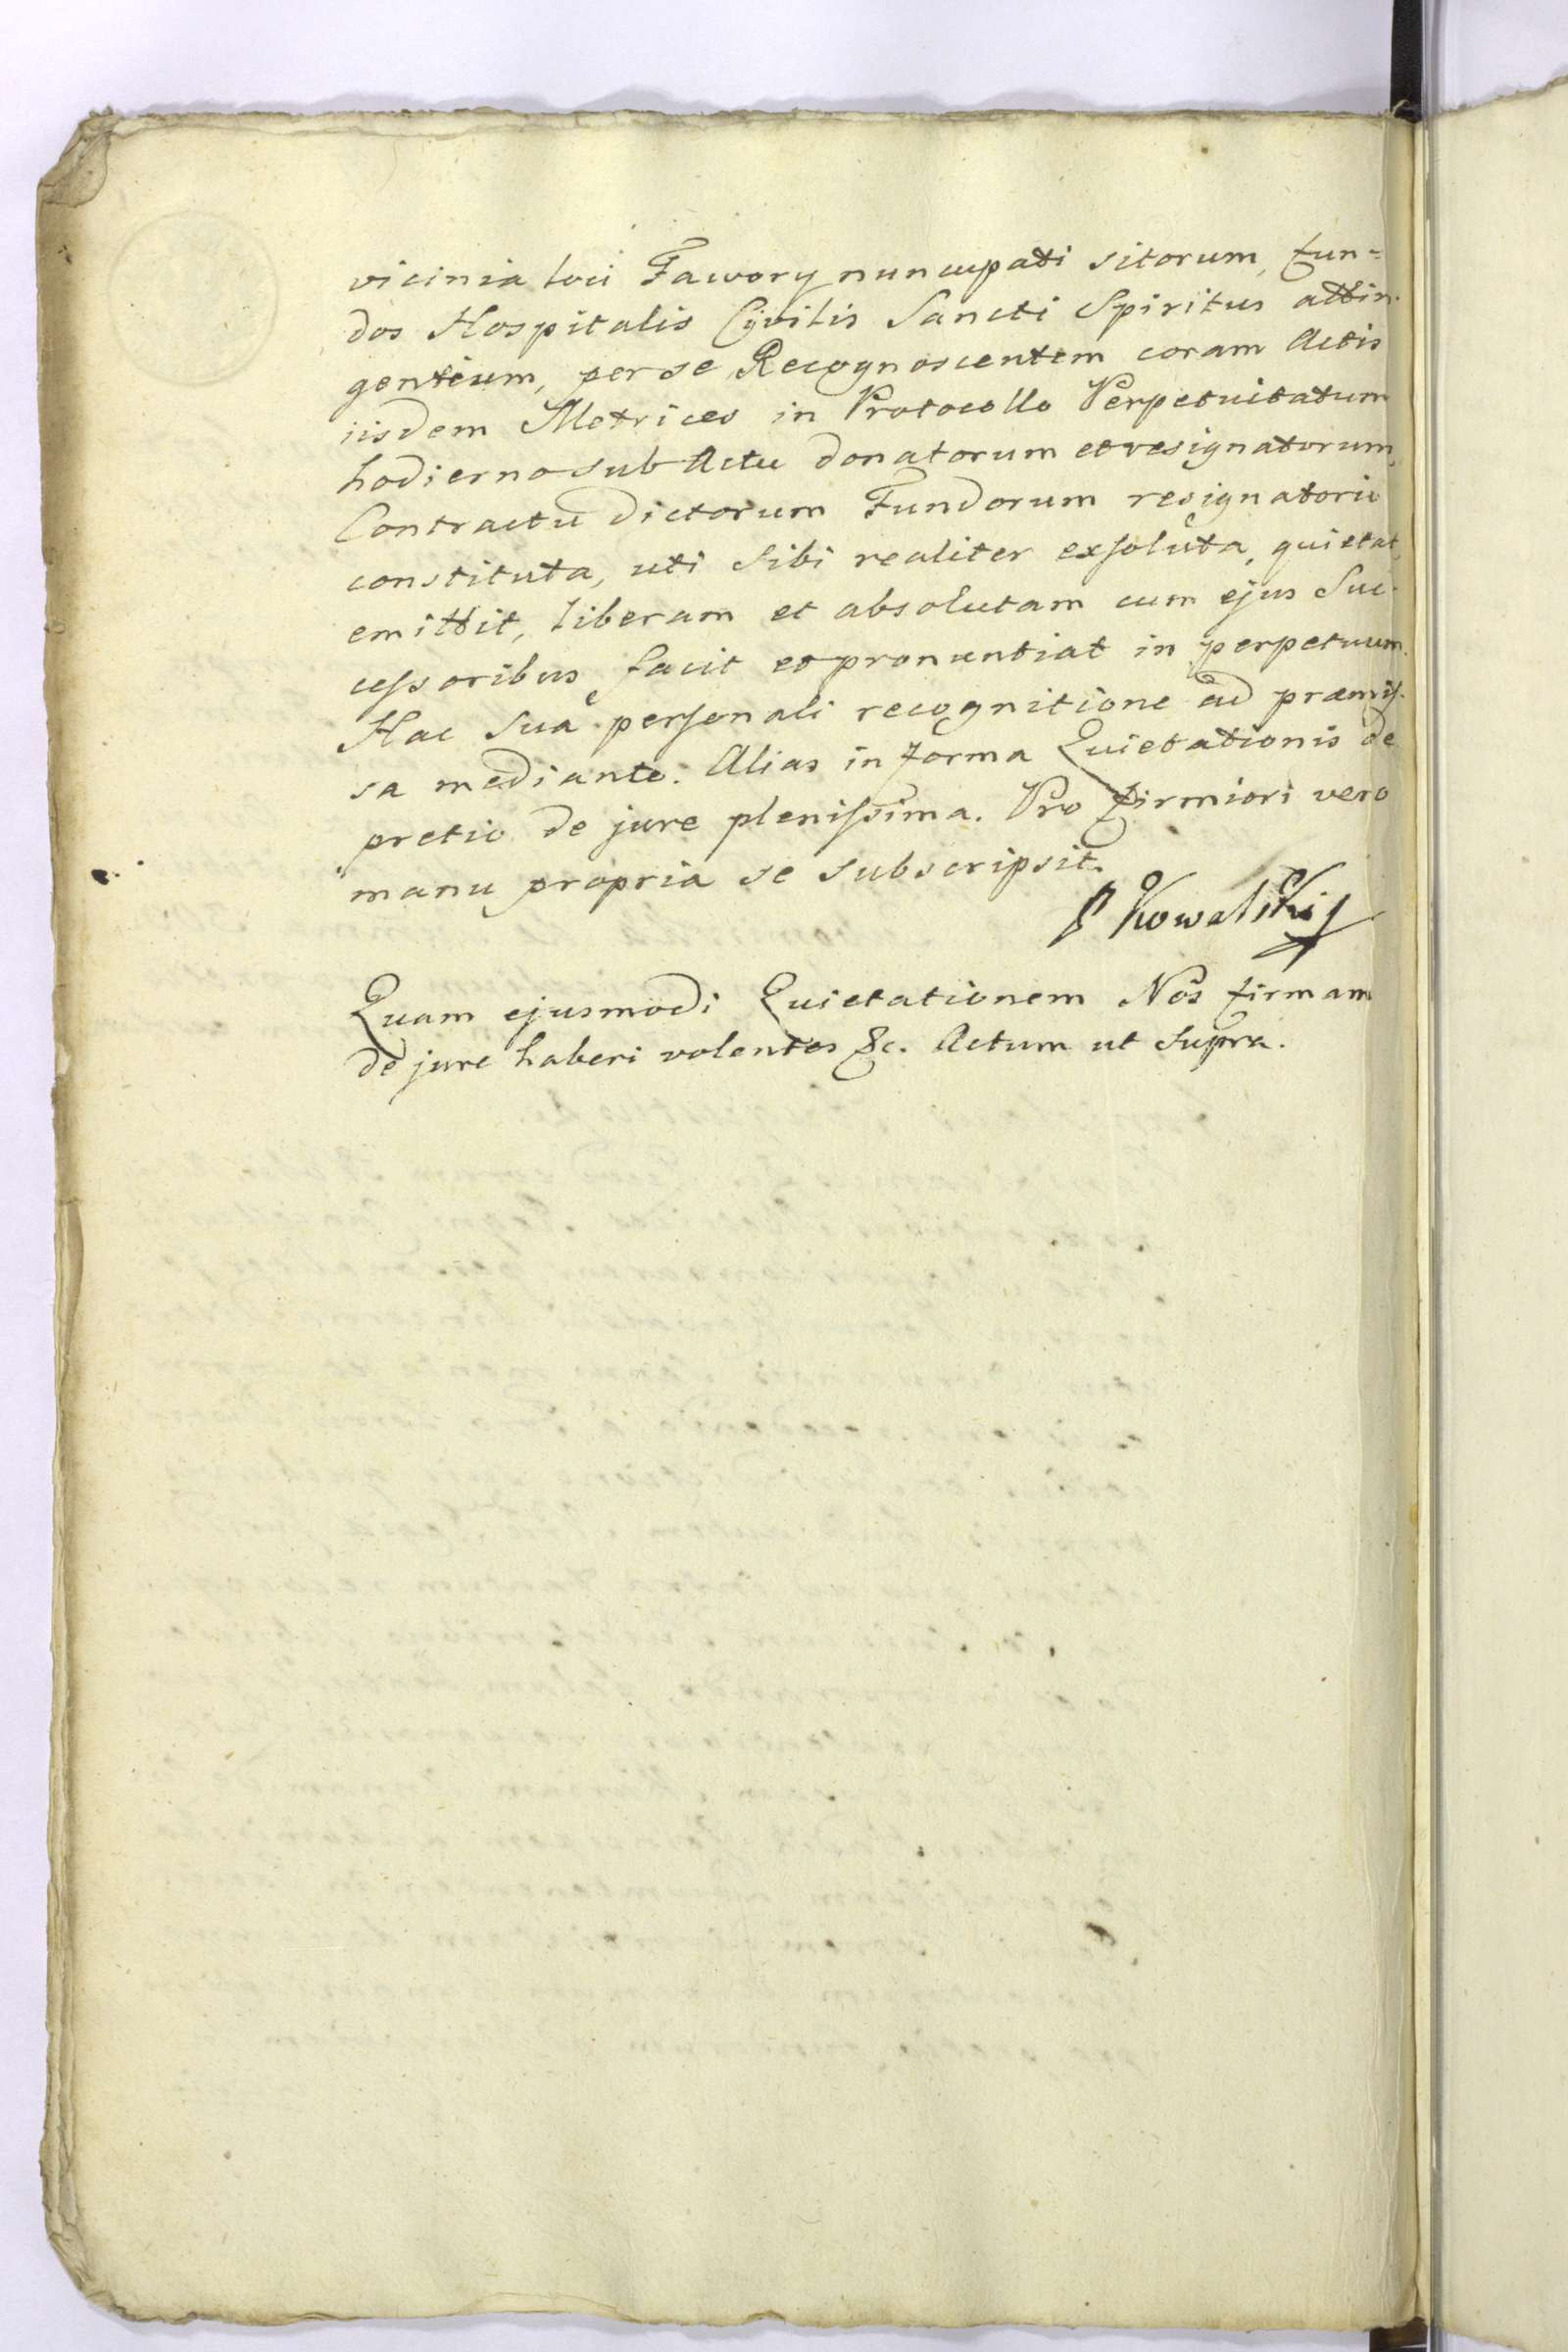 vicinia loci Fawory nuncupati sitorum, fun=
dos Hospitalis Cÿvilis Sancti Spiritus attin-
gentium, per se Recognoscentem coram Actis
iisdem Metrices in Protocollo Perpetuitatum
hodierno sub Actu donatorum et resignatorum,
Contractu dictorum Fundorum resignatorio
constituta, uti sibi realiter exsoluta, quietat,
emittit, liberam et absolutam cum ejus Suc-
cessoribus facit et pronuntiat in perpetuum.
Hac Suâ personali recognitione ad præmis-
sa mediante. Alias in forma Quietationis de
pretio de jure plenissima. Pro firmiori vero
manu propria se subscripsit.
Kowalski
Quam ejusmodi Quietationem Nos firmam
de jure haberi volentes &c. Actum ut Supra.